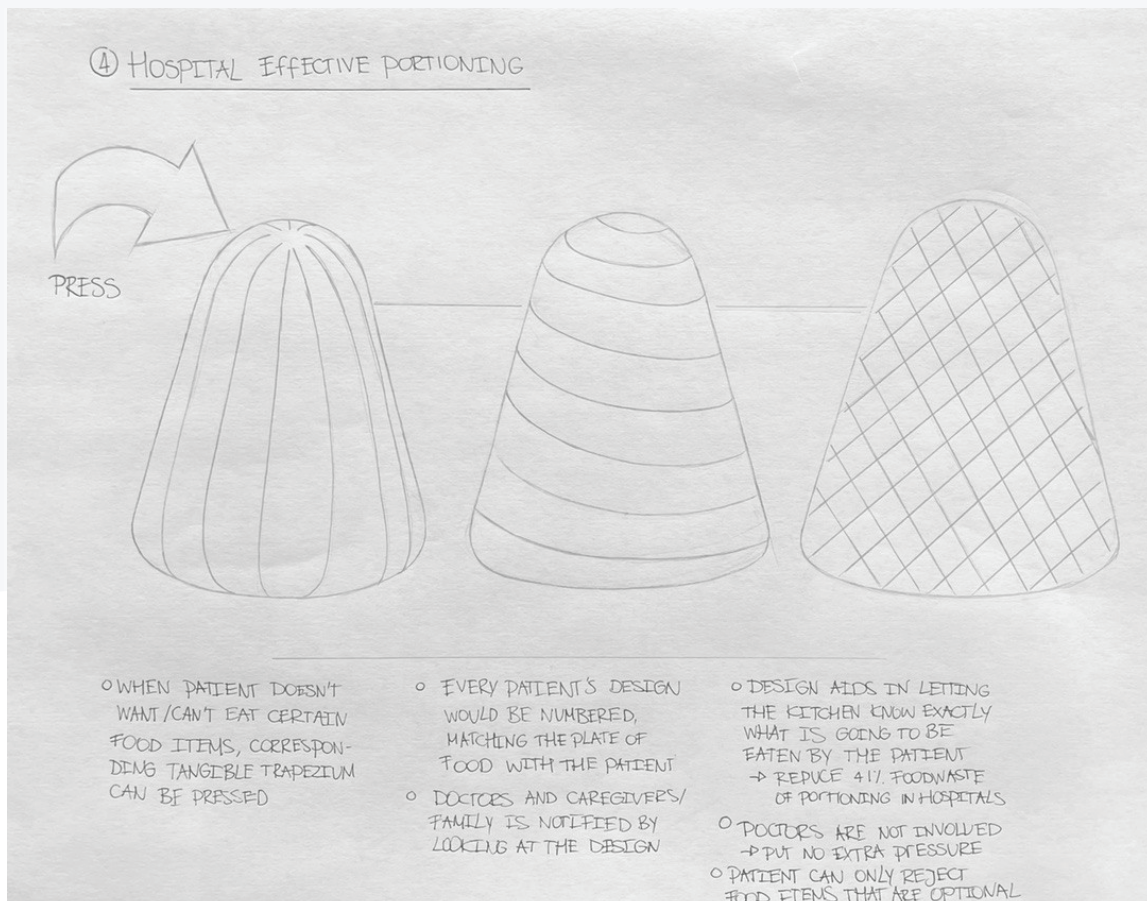 ④ HOSPITAL EFFECTIVE PORTIONING
PRESS
○ WHEN PATIENT DOESN'T
WANT/CAN'T EAT CERTAIN
FOOD ITEMS, CORRESPON-
DING TANGIBLE TRAPEZIUM
CAN BE PRESSED
○ EVERY PATIENT'S DESIGN
WOULD BE NUMBERED,
MATCHING THE PLATE OF
FOOD WITH THE PATIENT
○ DOCTORS AND CAREGIVERS/
FAMILY IS NOTIFIED BY
LOOKING AT THE DESIGN
○ DESIGN AIDS IN LETTING
THE KITCHEN KNOW EXACTLY
WHAT IS GOING TO BE
EATEN BY THE PATIENT
→ REDUCE 41% FOODWASTE
OF PORTIONING IN HOSPITALS
○ DOCTORS ARE NOT INVOLVED
→ PUT NO EXTRA PRESSURE
○ PATIENT CAN ONLY REJECT
FOOD ITEMS THAT ARE OPTIONAL